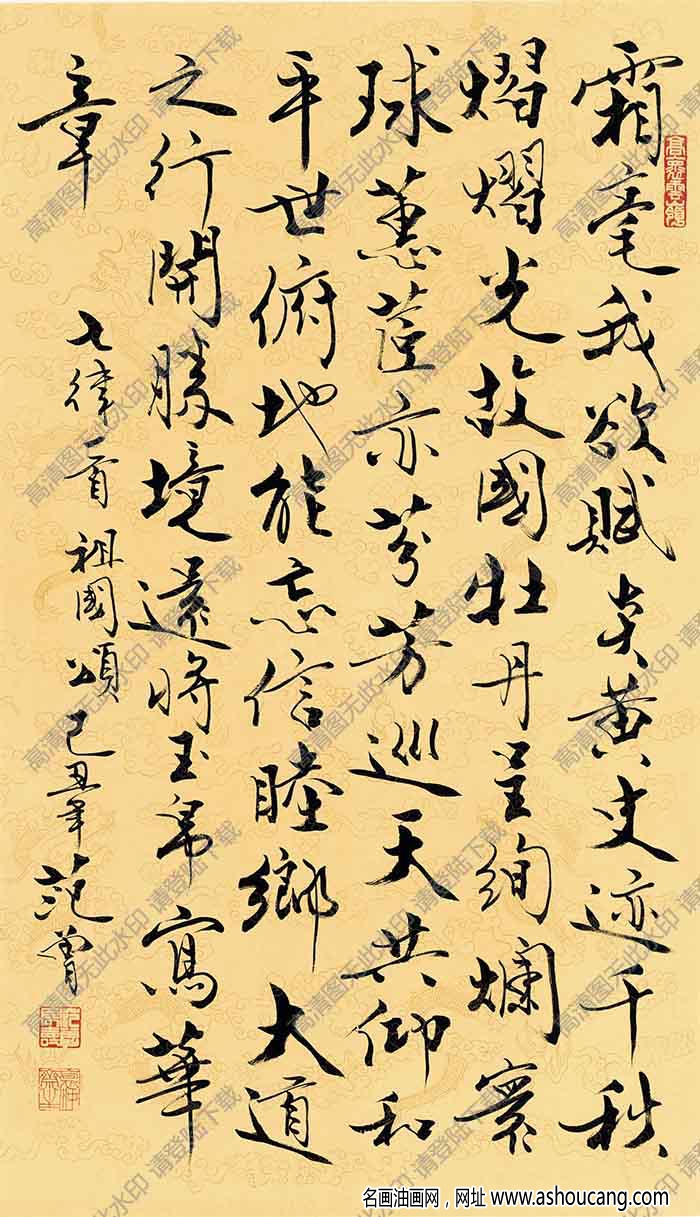 霜毫我欲賦炎黄史迹千秋
熠熠光故國牡丹呈絢爛寰
球蕙茝亦芬芳巡天共仰和
平世俯地能忘信睦鄉大道
之行開勝境還將玉帛寫華
章
七律一首祖國頌己丑年范曾
高清图无此水印 请登陆下载
名画油画网，网址 www.ashoucang.com